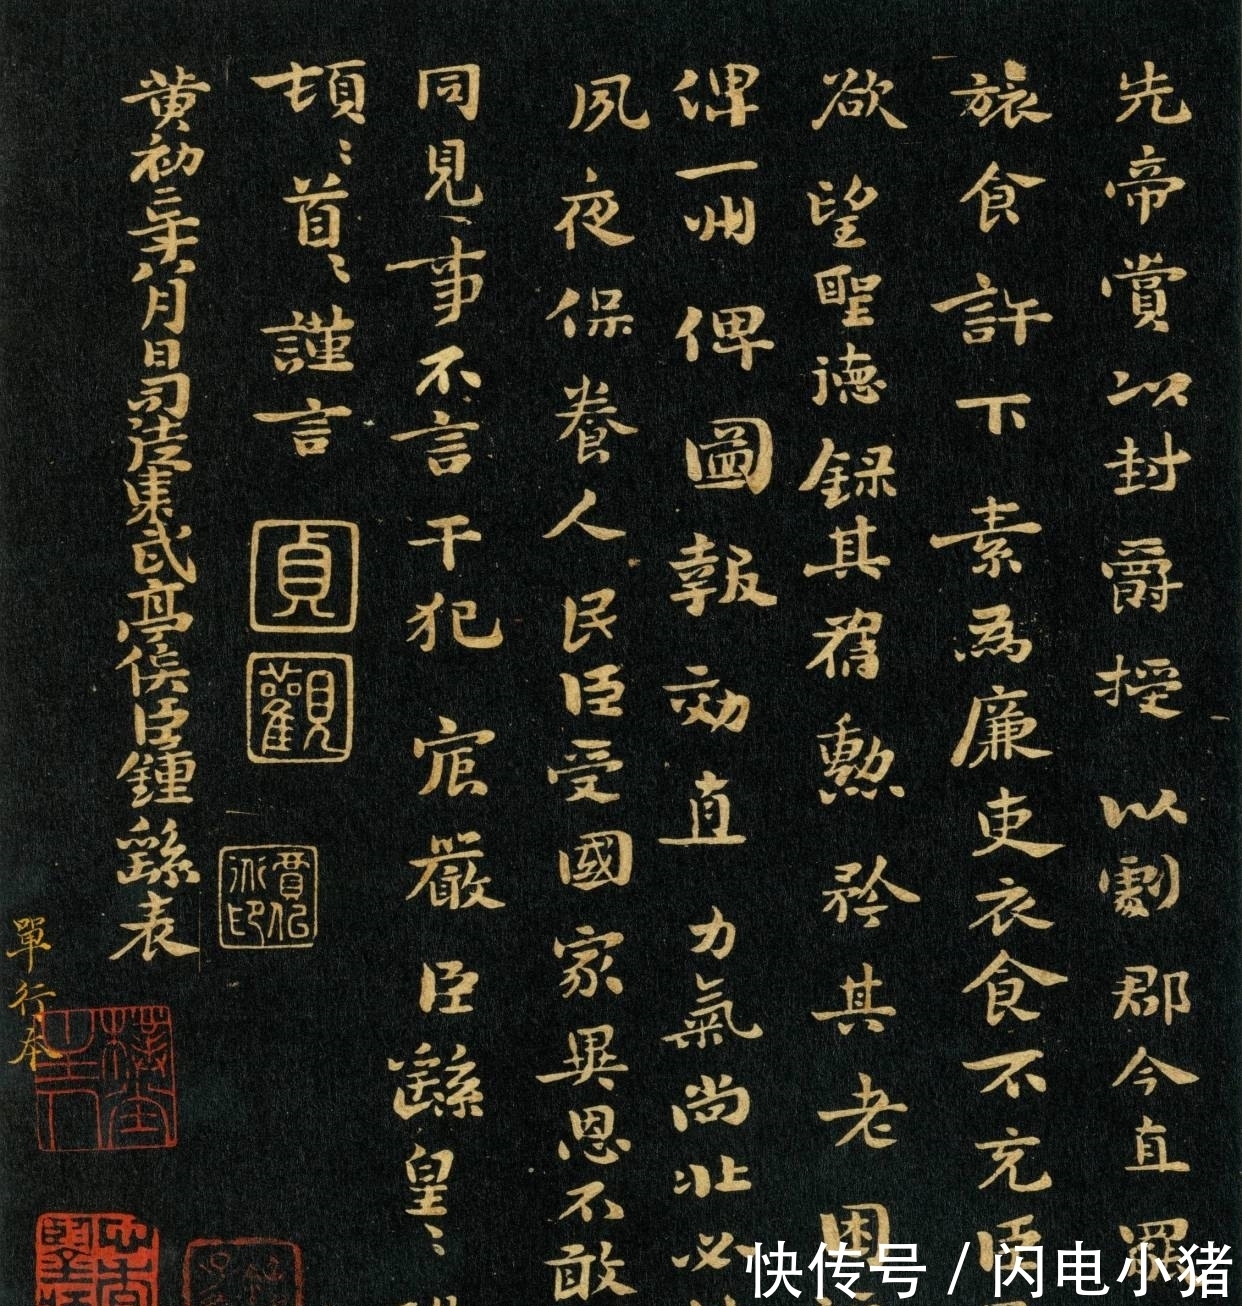 先帝賞以封爵授以劇郡今直罷
旅食許下素為廉吏衣食不充臣
欲望聖德錄其舊勳矜其老困
俾一州俾圖報效直力氣尚壯必
夙夜保養人民臣受國家異恩不敢
同見事不言干犯宸嚴臣繇皇〻
頓〻首〻謹言
黃初二年八月日司徒東武亭侯臣鍾繇表
貞
觀
單行本
快传号／闪电小猪